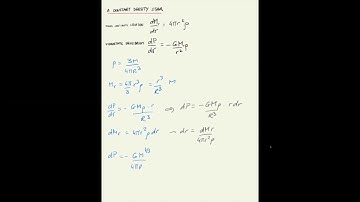 A CONSTANT DENSITY STAR
MASS CONTINUITY EQUATION: dMr/dr = 4πr²ρ
HYDROSTATIC EQUILIBRIUM: dP/dr = -GMr/r² ρ
ρ = 3M/4πR³
Mr = 4π/3 r³ρ = r³/R³ M
dP/dr = -GMρ r/R³ ⇒ dP = -GMρ/R³ rdr
dMr = 4πr²ρdr → dr = dMr/4πr²ρ
dP = -GM^1/3/4πR